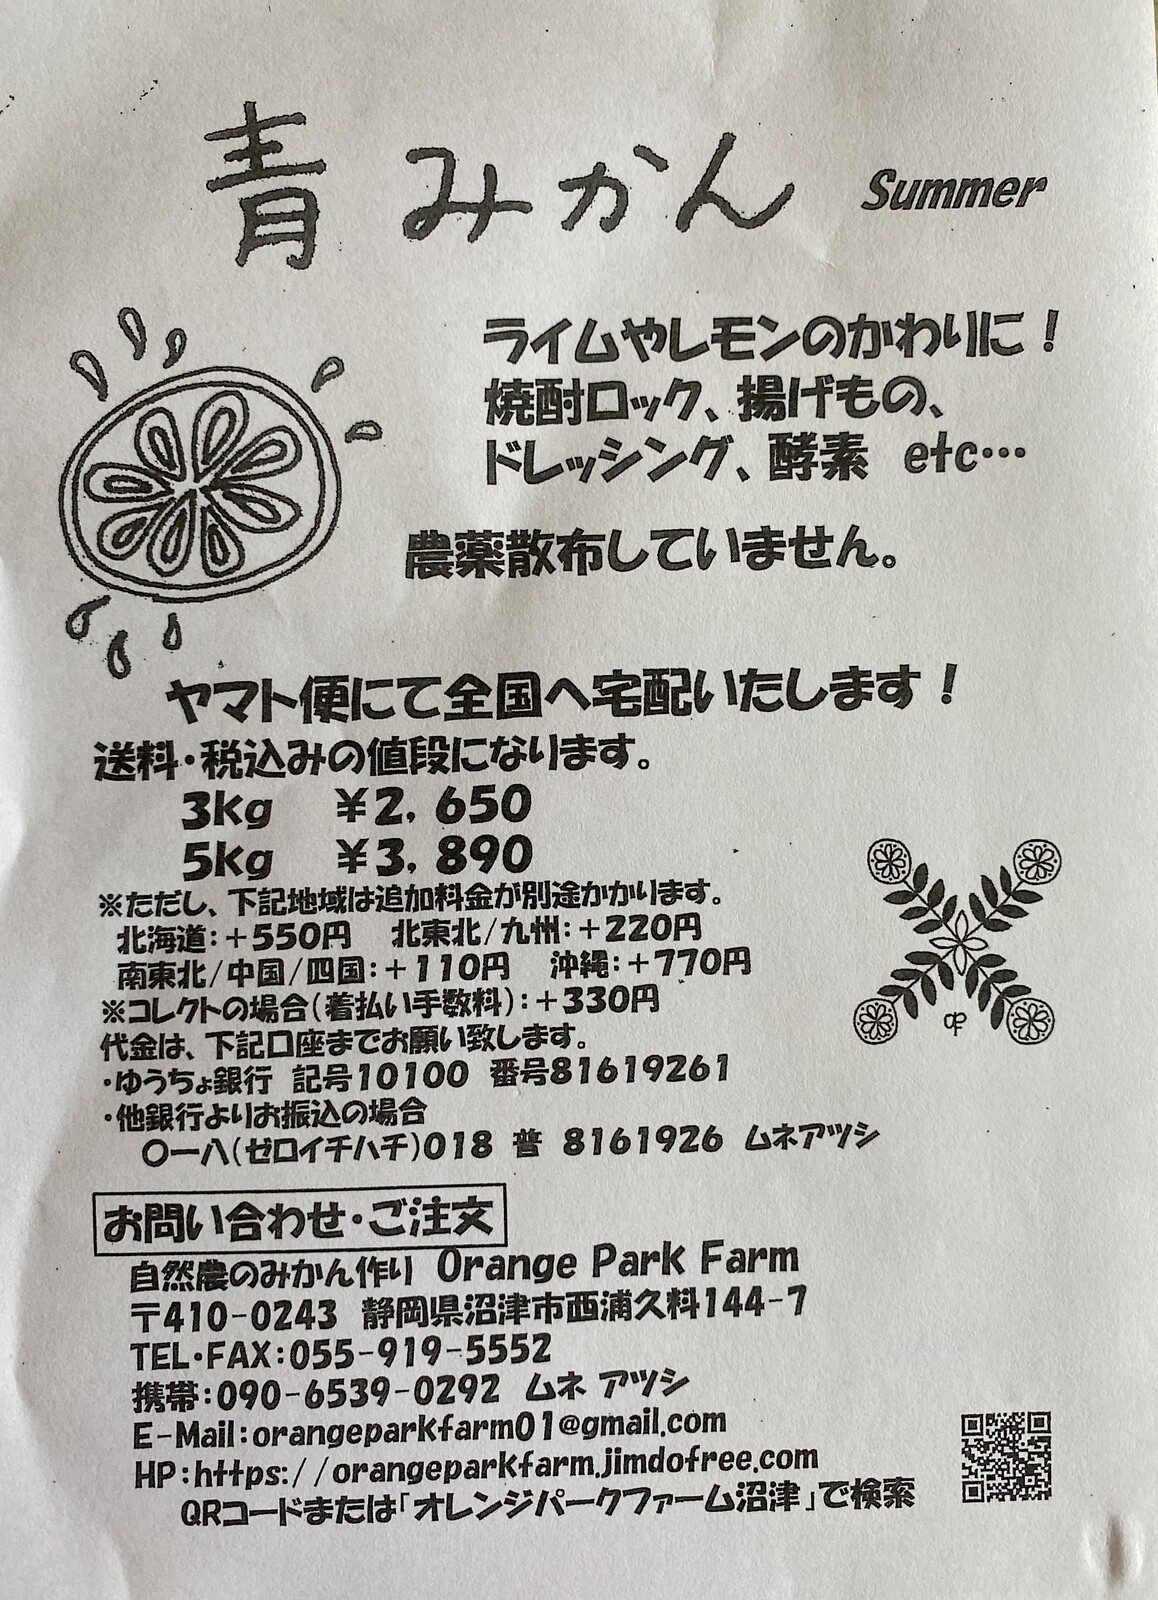 青みかん Summer
ライムやレモンのかわりに！
焼酎ロック、揚げもの、
ドレッシング、酵素 etc…
農薬散布していません。
ヤマト便にて全国へ宅配いたします！
送料・税込みの値段になります。
3kg ￥2，650
5kg ￥3，890
※ただし、下記地域は追加料金が別途かかります。
北海道：＋550円 北東北/九州：＋220円
南東北/中国/四国：＋110円 沖縄：＋770円
※コレクトの場合（着払い手数料）：＋330円
代金は、下記口座までお願い致します。
・ゆうちょ銀行 記号10100 番号81619261
・他銀行よりお振込の場合
〇一八（ゼロイチハチ）018 普 8161926 ムネアツシ
お問い合わせ・ご注文
自然農のみかん作り Orange Park Farm
〒410-0243 静岡県沼津市西浦久料144-7
TEL・FAX：055-919-5552
携帯：090-6539-0292 ムネ アツシ
E-Mail：orangeparkfarm01@gmail.com
HP：https://orangeparkfarm.jimdofree.com
QRコードまたは「オレンジパークファーム沼津」で検索
OP